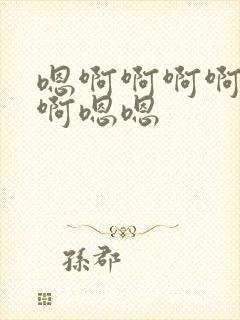 嗯啊啊啊啊
啊嗯嗯
孫郡